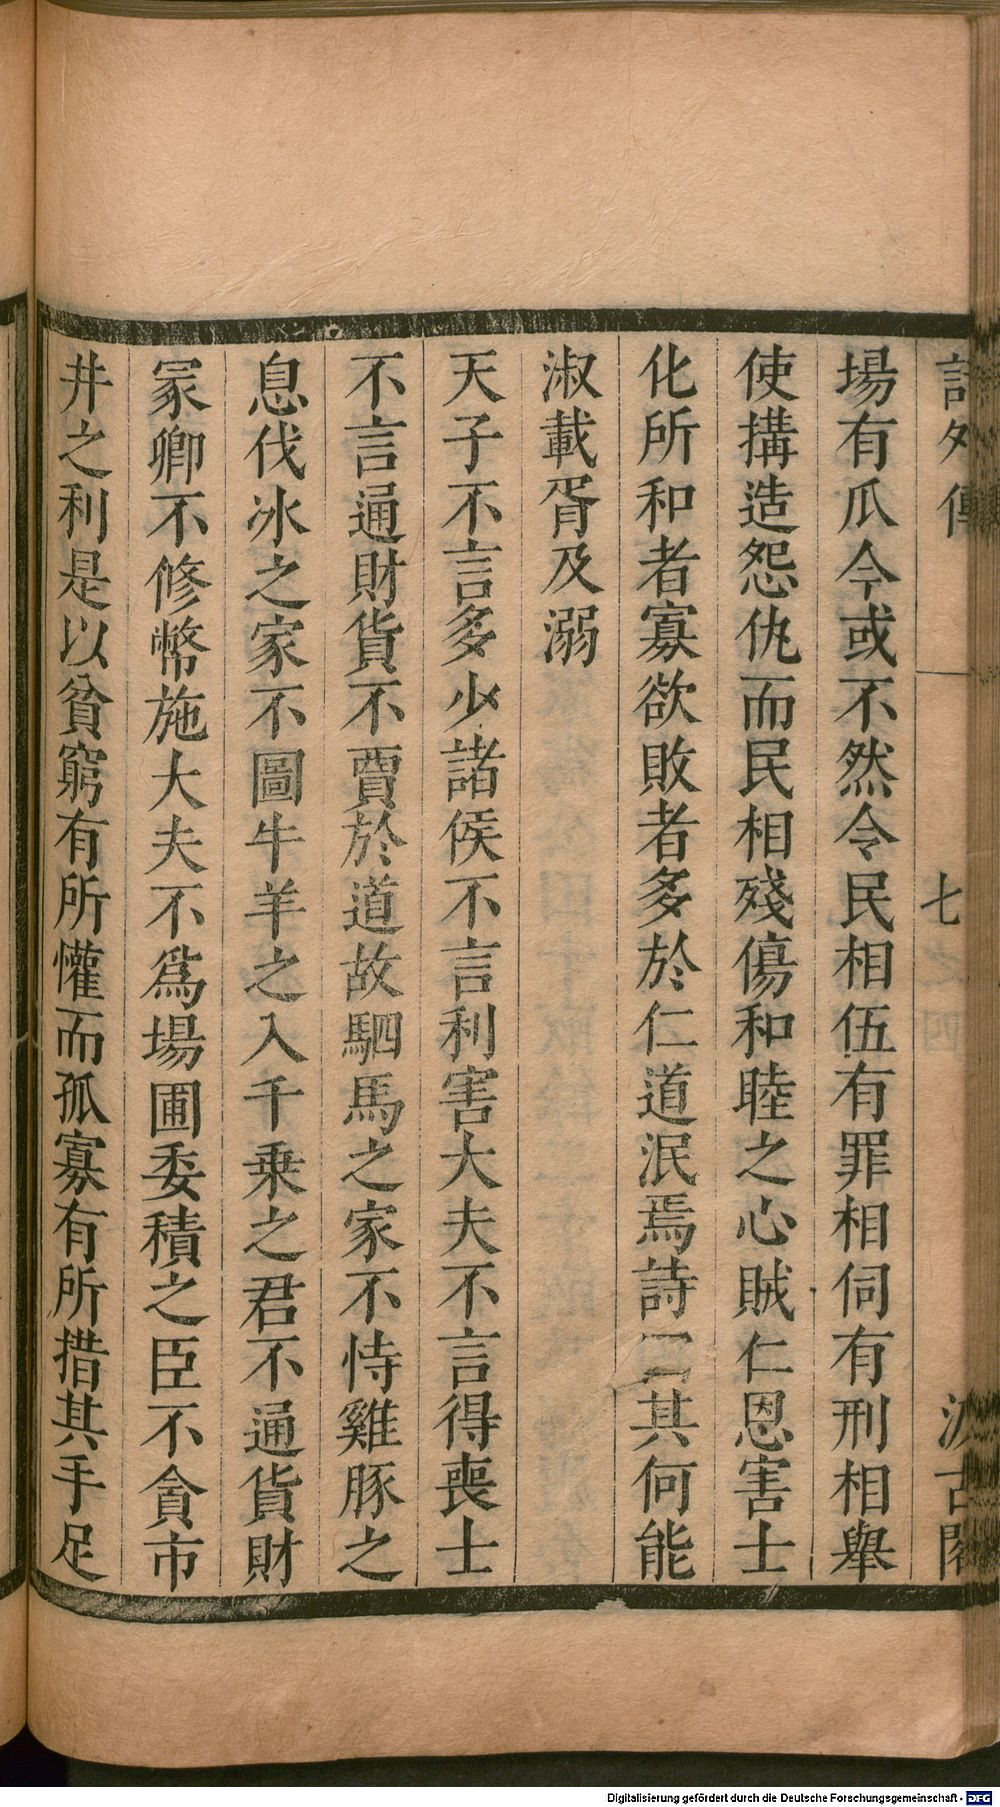 詩外傳 七 汲古閣
場有瓜今或不然令民相伍有罪相伺有刑相舉
使搆造怨仇而民相殘傷和睦之心賊仁恩害士
化所和者寡欲敗者多於仁道泯焉詩云其何能
淑載胥及溺
天子不言多少諸侯不言利害大夫不言得喪士
不言通財貨不賈於道故駟馬之家不恃雞豚之
息伐冰之家不圖牛羊之入千乗之君不通貨財
冡卿不修幣施大夫不爲場圃委積之臣不貪市
井之利是以貧窮有所懽而孤寡有所措其手足
Digitalisierung gefördert durch die Deutsche Forschungsgemeinschaft - DFG